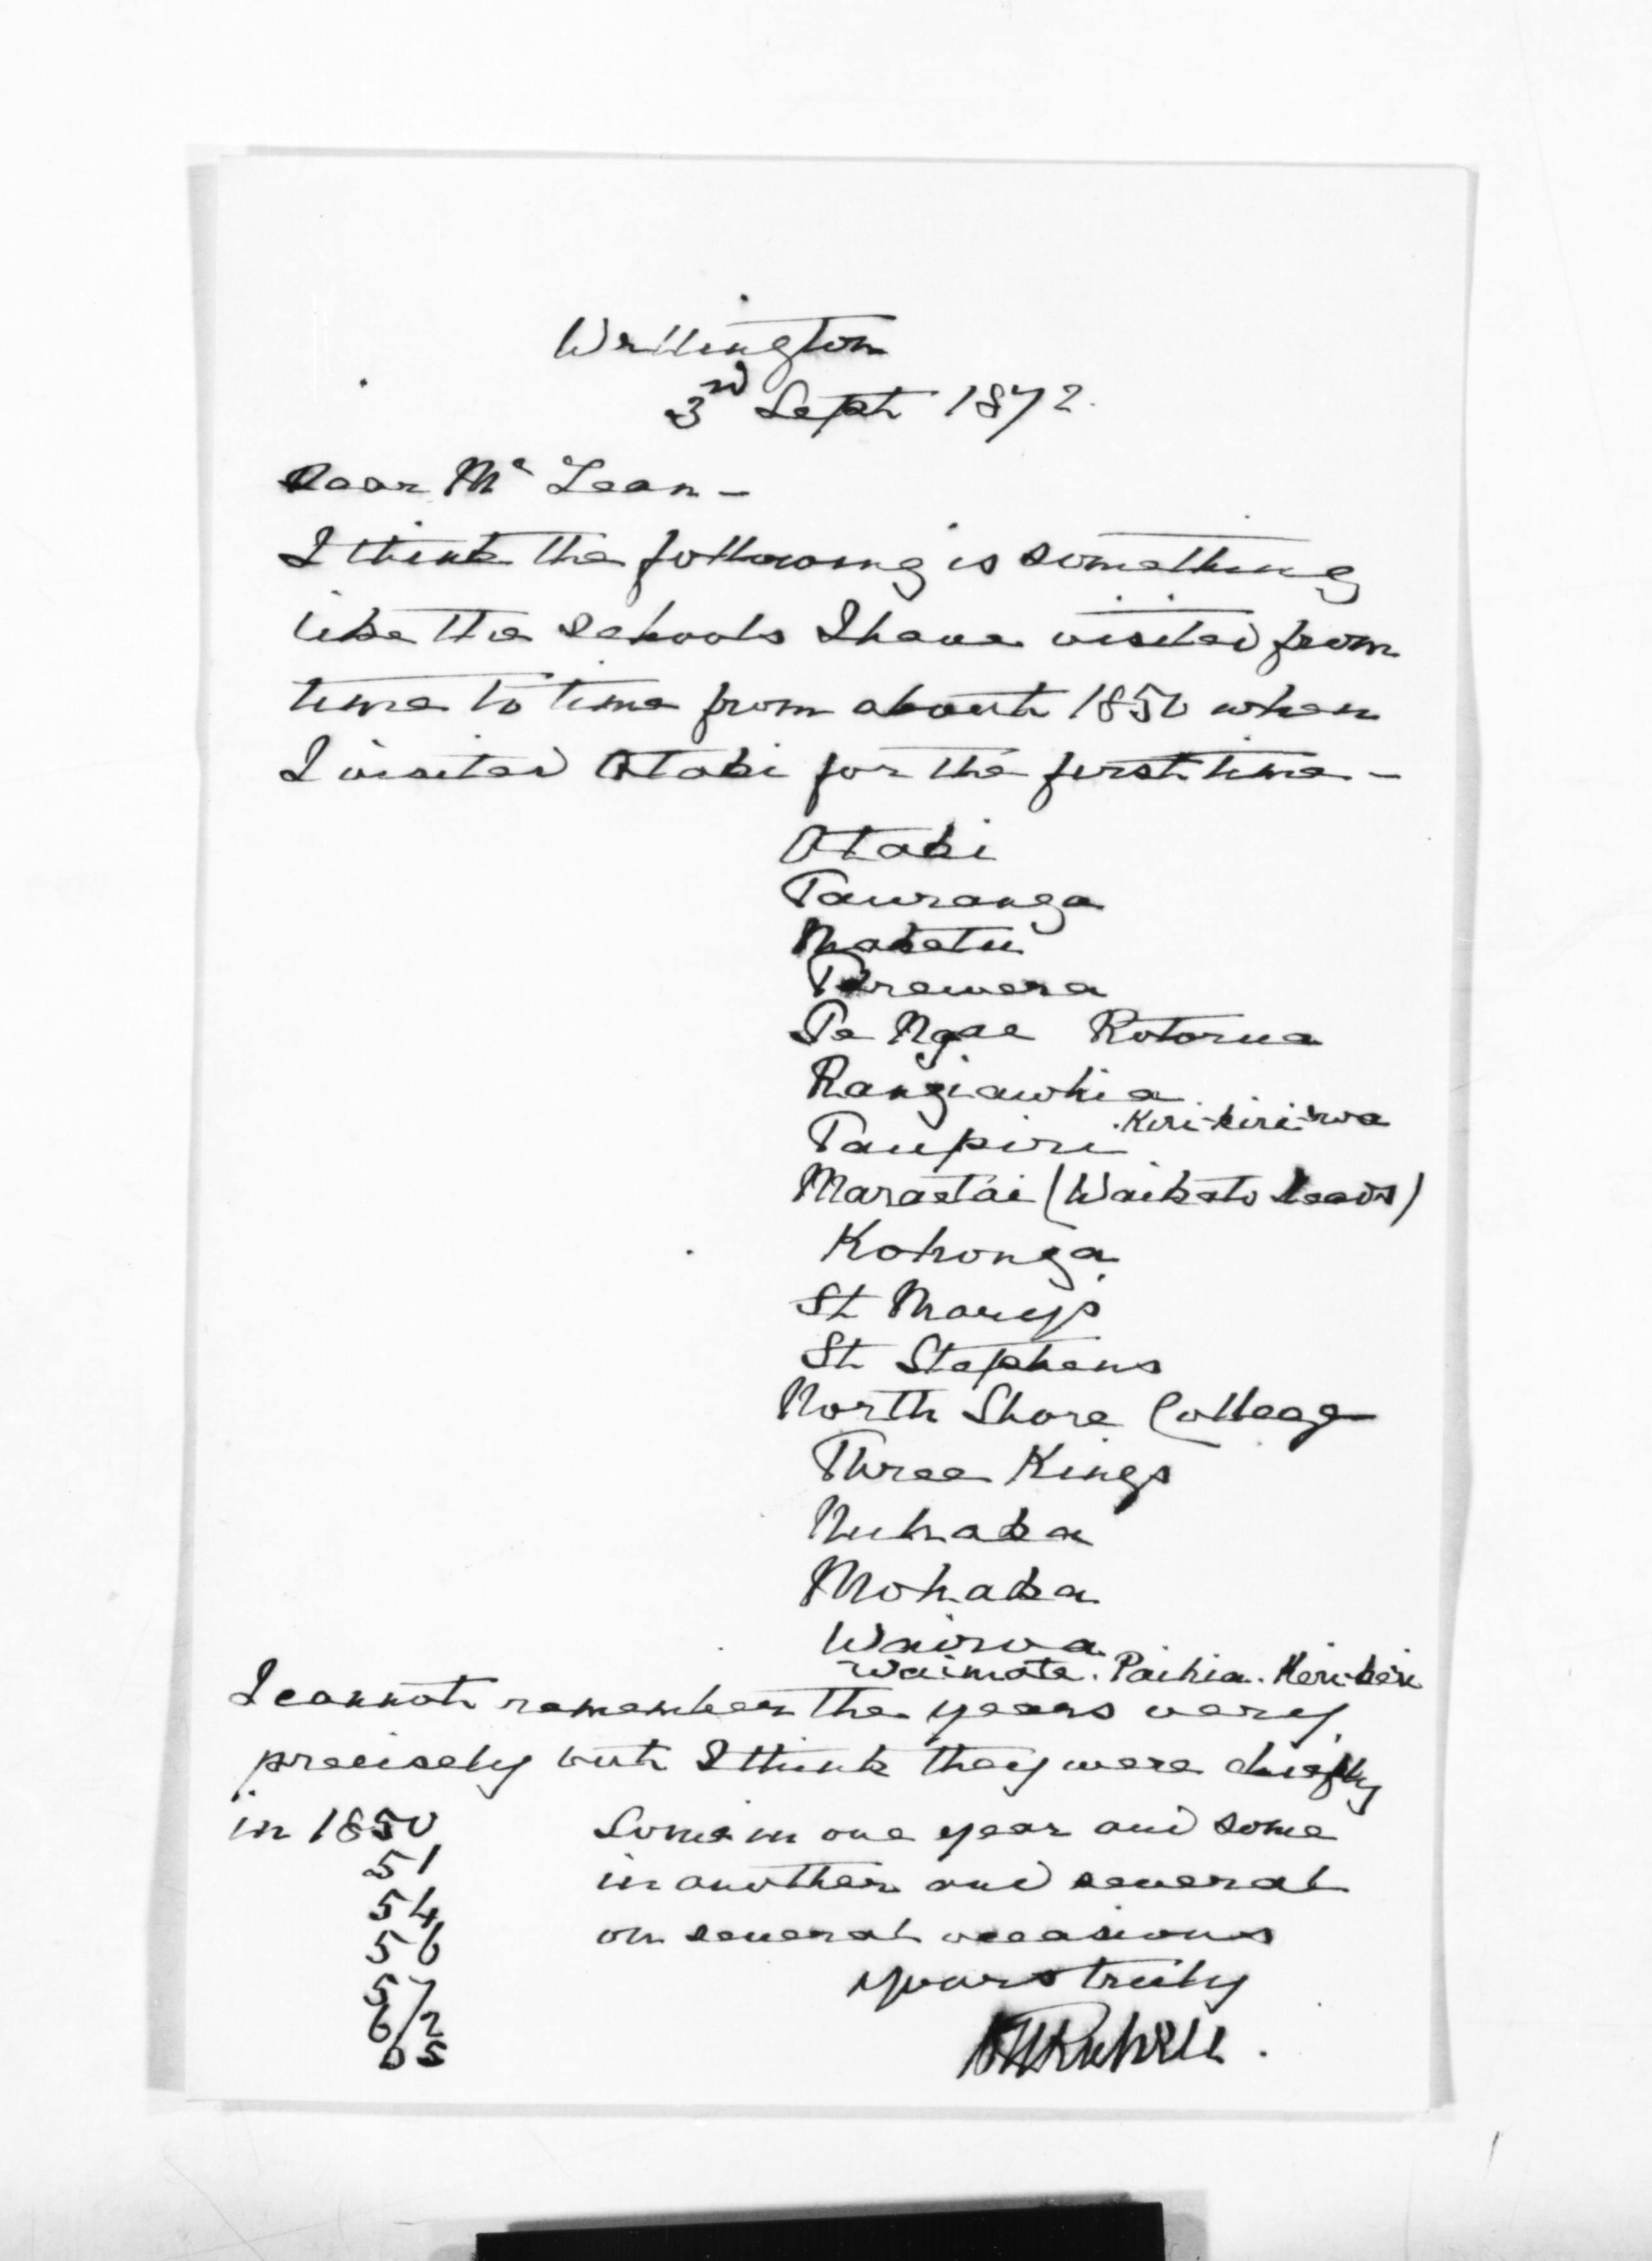 Wellington
3rd Sept 1872.
Dear McLean -
I think the following is something
like the schools I have visited from
time to time from about 1850 when
I visited Otaki for the first time -
Otaki
Tauranga
Maketu
Tarawera
Te Ngae Rotorua
Rangiawhia
Kiri-kiri-roa
Taupiri
Maraetai (Waikato Heads)
Kohonga
St Mary's
St Stephens
North Shore College
Three Kings
Nuhaka
Mohaka
Wairoa
Waimate. Paihia. Keri-keri
I cannot remember the years very
precisely but I think they were chiefly
in 1850 Some in one year and some
51 in another and several
54 on several occasions
56
57 yours truly
6/2
65